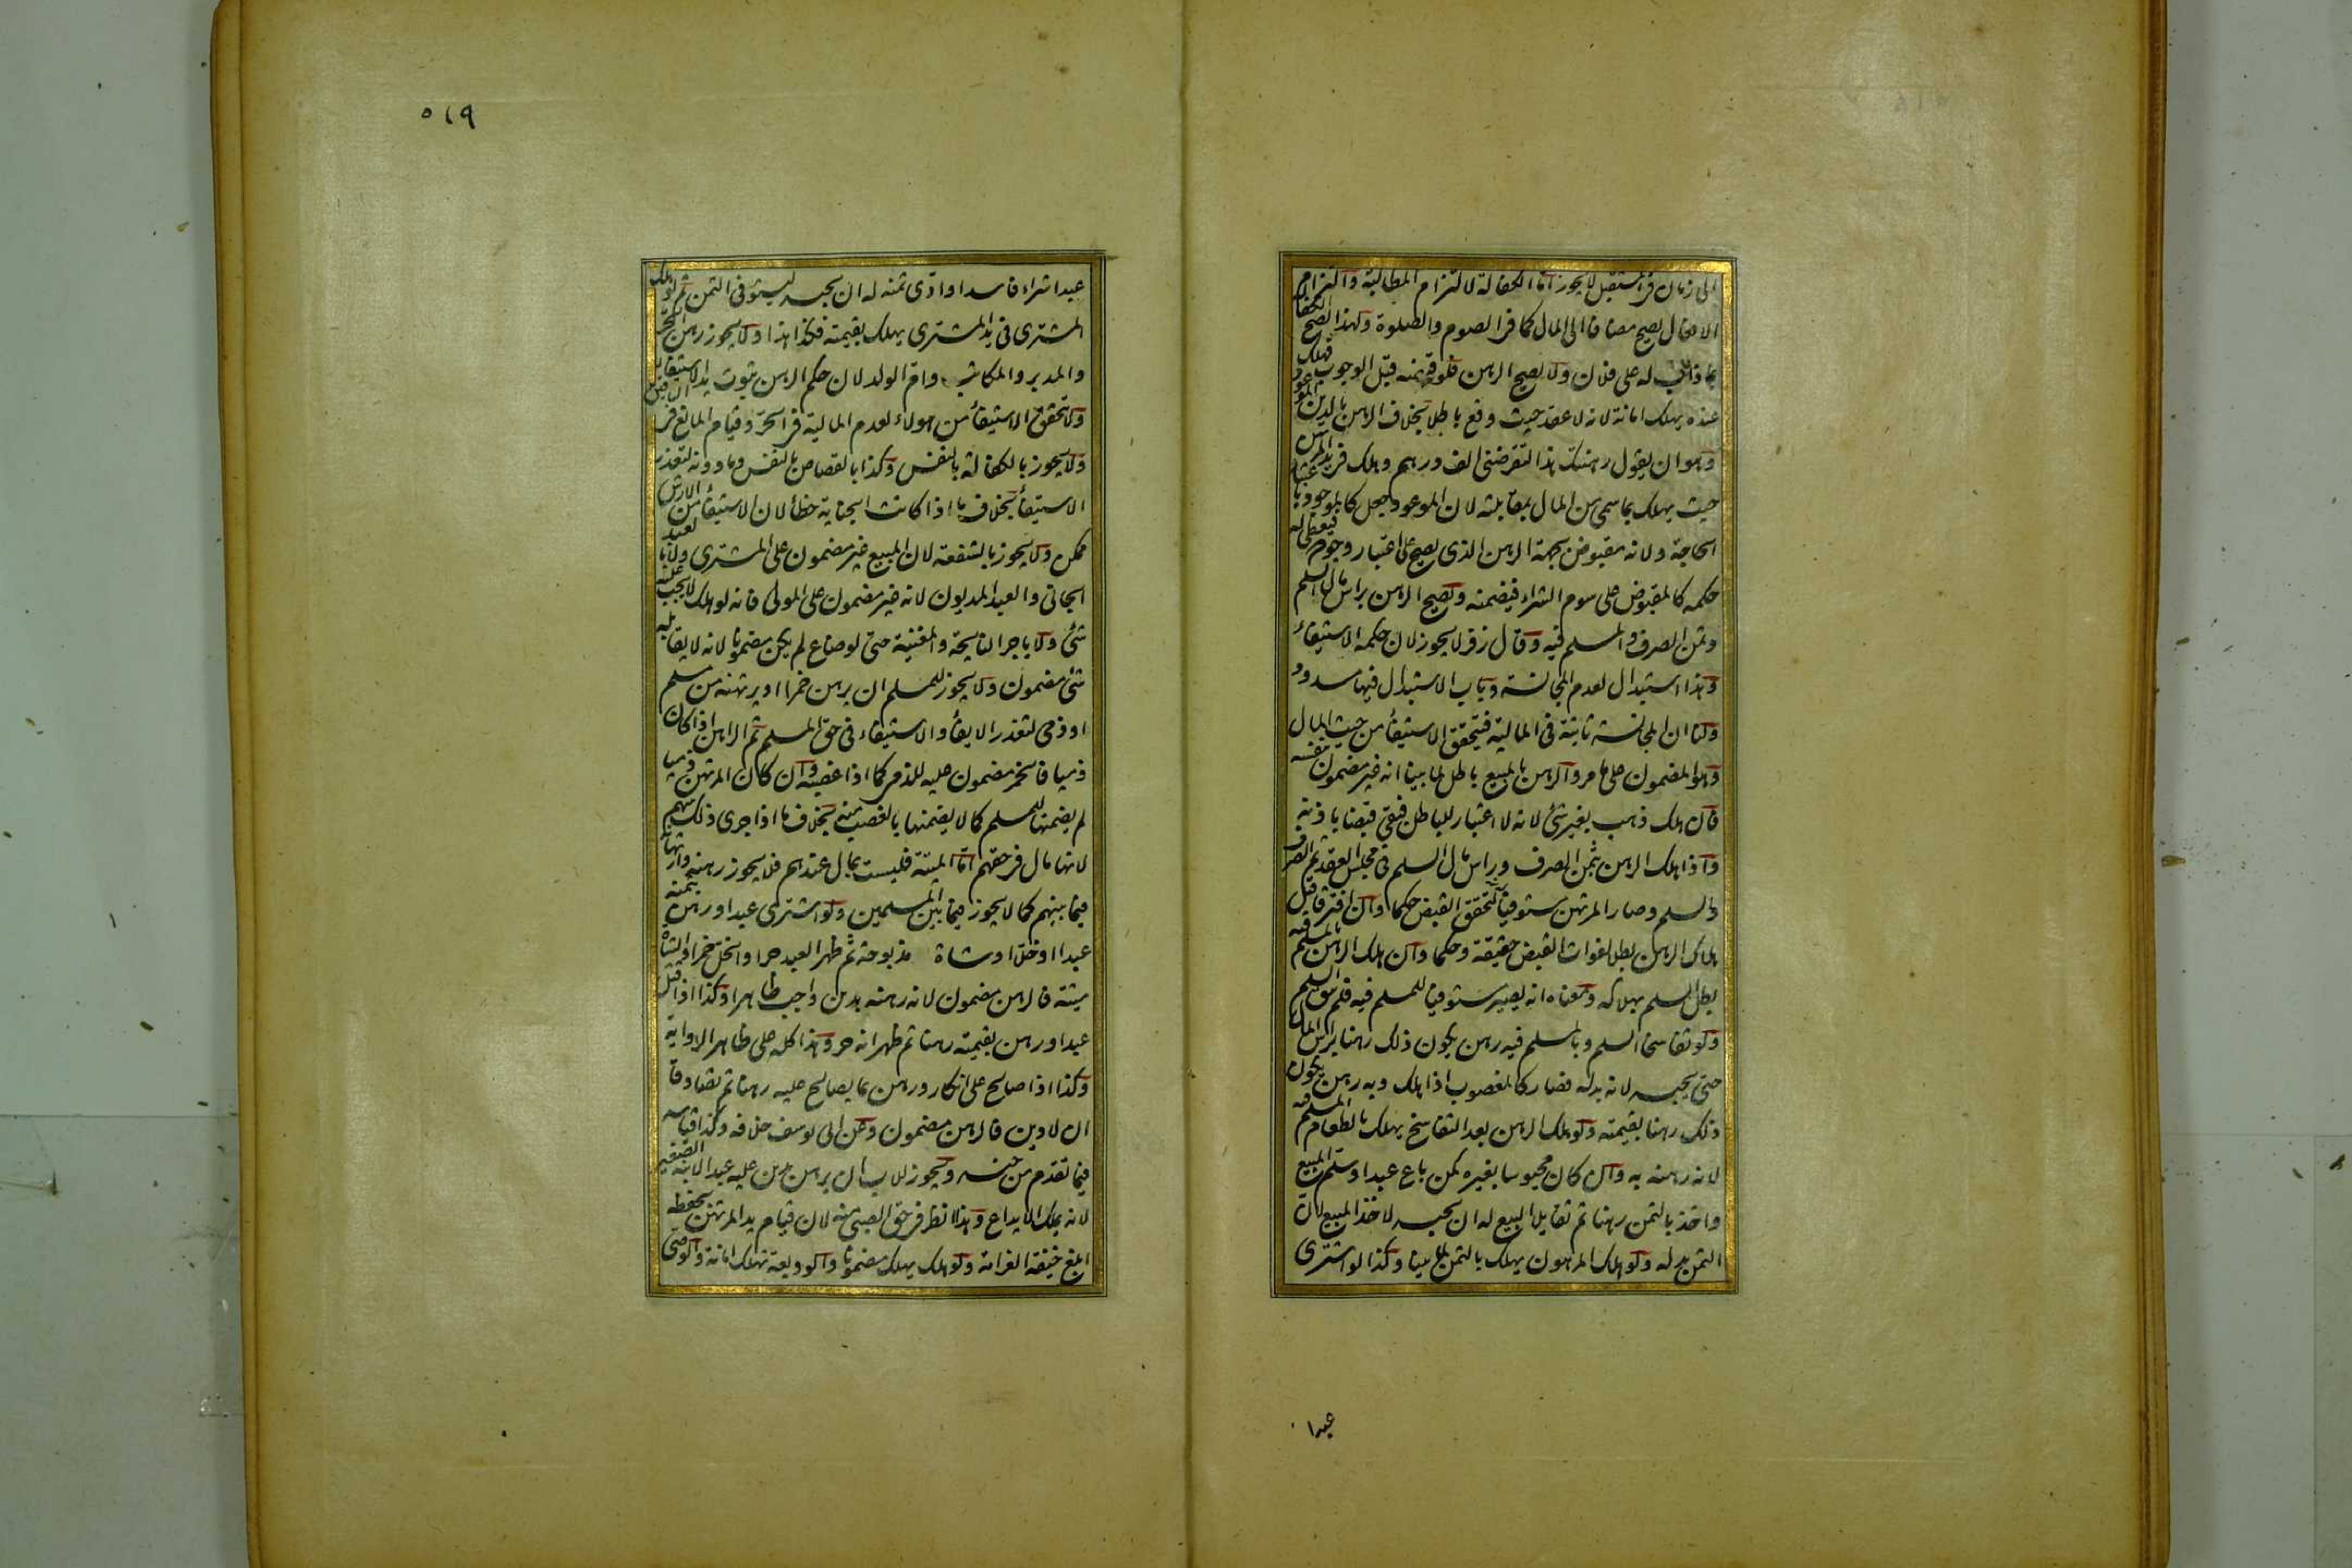 الى زمان فى المستقبل لا يجوز اما الكفالة لالتزام المطالبة والتزام
الافعال يصح مضافا الى المال كما فى الصوم والصلوة ولهذا تصح الكفالة
بما ذاب له على فلان ولا يصح الرهن فلو قبضه قبل الوجوب فهلك
عنده يهلك امانة لانه لا عقد حيث وقع باطلا بخلاف الرهن بالدين الموعود
وهو ان يقول رهنتك هذا لتقرضنى الف درهم وهلك فى يد المرتهن
حيث يهلك بما سمى من المال بمقابلته لان الموعود جعل كالموجود باعتبار
الحاجة ولانه مقبوض بجهة الرهن الذى يصح على اعتبار وجوده فيعطى له
حكمه كالمقبوض على سوم الشراء فيضمنه ويصح الرهن براس مال السلم
وثمن الصرف والمسلم فيه وقال زفر لا يجوز لان حكمه الاستيفاء
وهذا استبدال لعدم المجانسة وباب الاستبدال فيها مسدود
ولنا ان المجانسة ثابتة فى المالية فيتحقق الاستيفاء من حيث المال
وهو المضمون على ما مر والرهن بالمبيع باطل لما بينا انه غير مضمون بنفسه
فان هلك ذهب بغير شئ لانه لا اعتبار للباطل فبقى قبضا باذنه
واذا هلك الرهن بثمن الصرف وراس مال السلم فى مجلس العقد تم الصرف
والسلم وصار المرتهن مستوفيا لتحقق القبض حكما وان افترقا قبل
هلاك الرهن بطلا لفوات القبض حقيقة وحكما وان هلك الرهن بالمسلم فيه
بطل السلم بهلاكه ومعناه انه يصير مستوفيا للمسلم فيه فلم يبق السلم
ولو تفاسخا السلم وبالمسلم فيه رهن يكون ذلك رهنا براس المال
حتى يحبسه لانه بدله فصار كالمغصوب اذا هلك وبه رهن يكون
ذلك رهنا بقيمته ولو هلك الرهن بعد التفاسخ يهلك بالطعام المسلم فيه
لانه رهنه به وان كان محبوسا بغيره كمن باع عبدا وسلم المبيع
واخذ بالثمن رهنا ثم تقايلا البيع له ان يحبسه لاخذ المبيع لان
الثمن بدله ولو هلك المرهون يهلك بالثمن لما بينا وكذا لو اشترى
عبدا
٥١٩
عبدا شراء فاسدا وادى ثمنه له ان يحبسه ليستوفى الثمن ثم لو هلك
المشترى فى يد المشترى يهلك بقيمته فكذا هذا ولا يجوز رهن الحر
والمدبر والمكاتب وام الولد لان حكم الرهن ثبوت يد الاستيفاء
ولا يتحقق الاستيفاء من هولاء لعدم المالية فى الحر وقيام المانع فى الباقين
ولا يجوز بالكفالة بالنفس وكذا بالقصاص بالنفس وما دونه لتعذر
الاستيفاء بخلاف ما اذا كانت الجناية خطأ لان الاستيفاء من الارش
ممكن ولا يجوز بالشفعة لان المبيع غير مضمون على المشترى ولا بالعبد
الجانى والعبد المديون لانه غير مضمون على المولى فانه لو هلك لا يجب عليه
شئ ولا باجر النايحة والمغنية حتى لو ضاع لم يكن مضمونا لانه لا يقابله
شئ مضمون ولا يجوز للمسلم ان يرهن خمرا او يرتهنه من مسلم
او ذمى لتعذر الايفاء والاستيفاء فى حق المسلم ثم الراهن اذا كان
ذميا فالخمر مضمون عليه للذمى كما اذا غصبه وان كان المرتهن ذميا
لم يضمنها للمسلم كما لا يضمنها بالغصب منه بخلاف ما اذا جرى ذلك بينهم
لانها مال فى حقهم اما الميتة فليست بمال عندهم فلا يجوز رهنه وارتهانها
فيما بينهم كما لا يجوز فيما بين المسلمين ولو اشترى عبدا ورهن بثمنه
عبدا او خلا او شاة مذبوحة ثم ظهر العبد حرا والخل خمرا والشاة
ميتة فالرهن مضمون لانه رهنه بدين واجب ظاهرا وكذا اذا قتل
عبدا ورهن بقيمته رهنا ثم ظهر انه حر وهذا كله على ظاهر الرواية
وكذا اذا صالح على انكار ورهن بما يصالح عليه رهنا ثم تصادقا
ان لا دين فالرهن مضمون وعن ابى يوسف خلافه وكذا قياسه
فيما تقدم من جنسه ويجوز للاب ان يرهن بدين عليه عبدا لابنه الصغير
لانه يملك الايداع وهذا انظر فى حق الصبى منه لان قيام يد المرتهن بحفظه
ابلغ خيفة الغرامة ولو هلك يهلك مضمونا والوديعة تهلك امانة والوصى